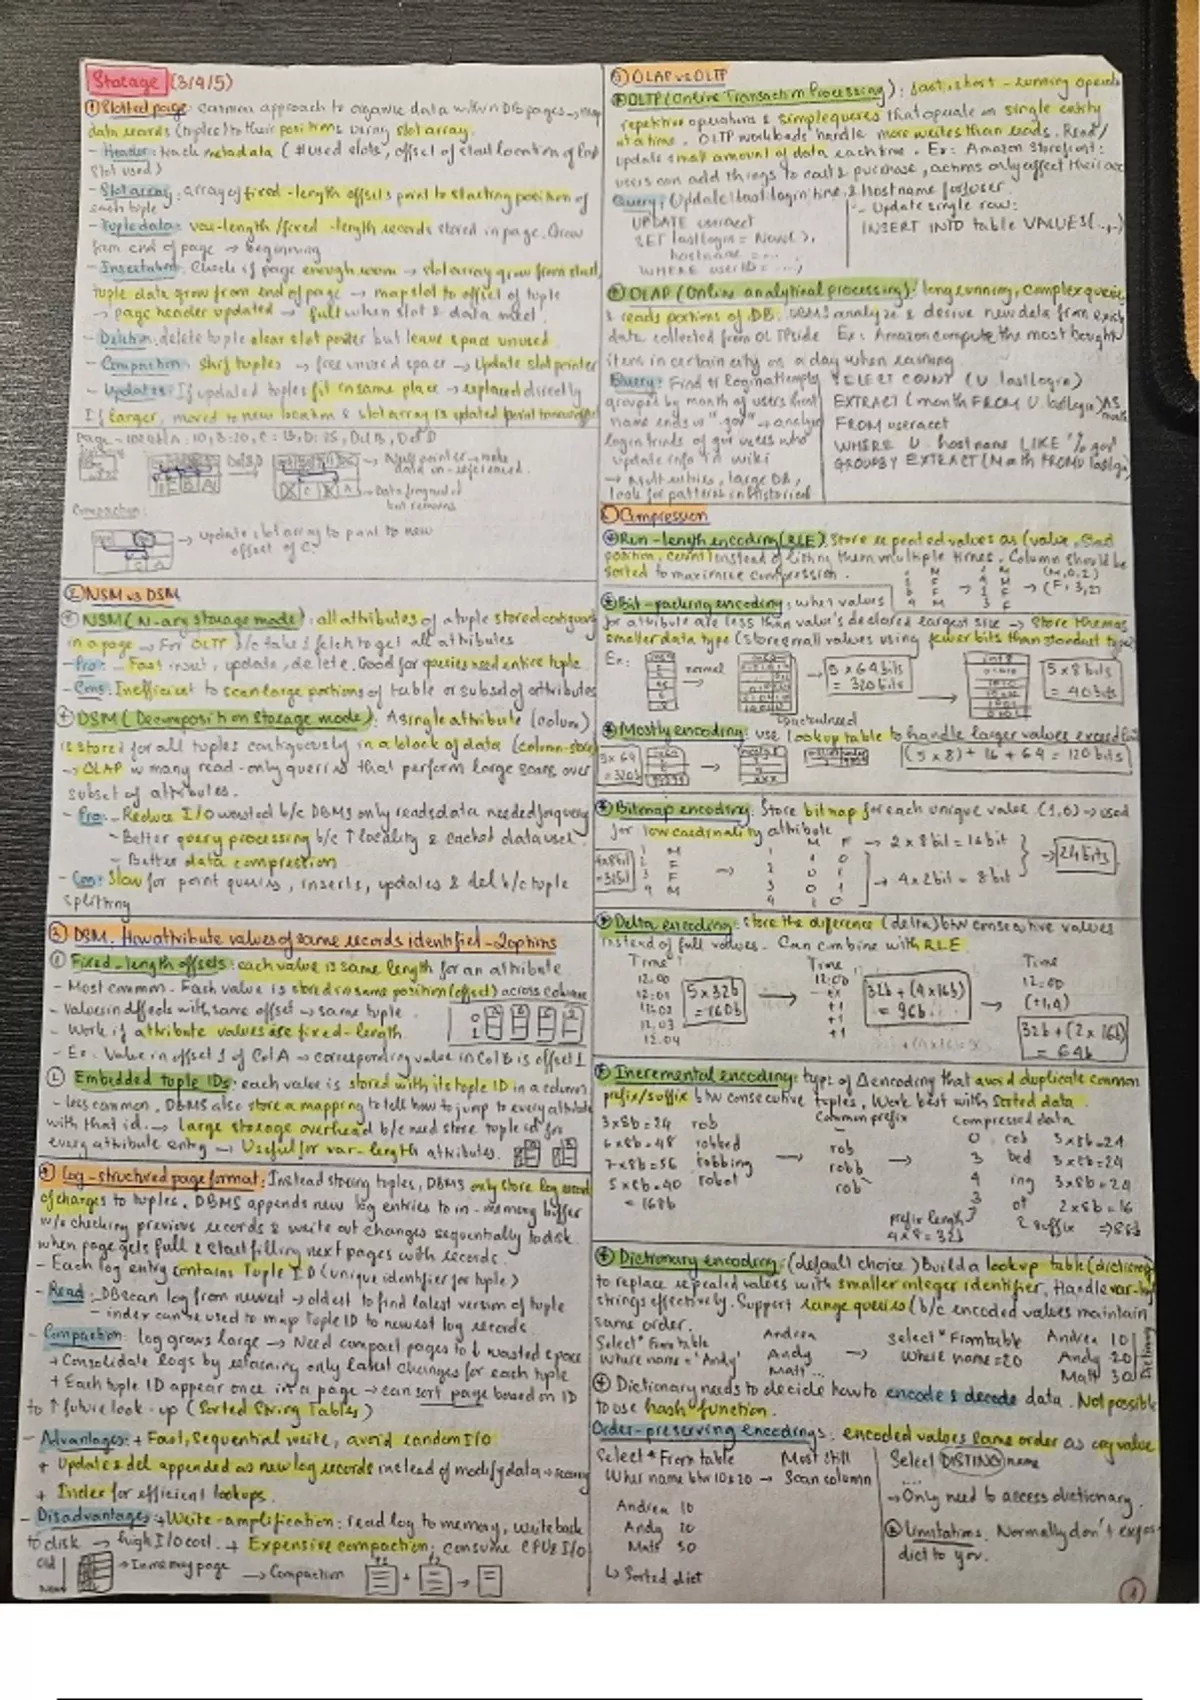 Storage (3/4/5)
① Slotted page: common approach to organize data within DB pages → map
data records (tuples) to their positions using slot array.
- Header: track metadata (#used slots, offset of start location of last
slot used)
- Slot array: array of fixed-length offsets point to starting position of
each tuple
- Tuple data: var-length/fixed-length records stored in page. Grow
from end of page → beginning
- Insertion: Check if page enough room → slot array grow from start,
tuple data grow from end of page → map slot to offset of tuple
→ page header updated → full when slot & data meet.
- Deletion: delete tuple clear slot pointer but leave space unused
- Compaction: Shift tuples → free unused space → Update slot pointer
- Updates: If updated tuples fit in same place → replaced directly
If larger, moved to new location & slot array is updated
Del B
→ Null pointer → make
data un-referenced.
→ Data fragmented
but remains
Compaction:
→ update slot array to point to new
offset of C
② NSM vs DSM
NSM (N-ary storage mode): all attributes of a tuple stored contiguously
in a page → For OLTP b/c take 1 fetch to get all attributes
- Pro: - Fast insert, update, delete. Good for queries need entire tuple
- Cons: Inefficient to scan large portions of table or subset of attributes
+ DSM (Decomposition storage mode): A single attribute (column)
is stored for all tuples contiguously in a block of data (column-store)
→ OLAP w many read-only queries that perform large scans over
subset of attributes.
- Pro: - Reduce I/O wasted b/c DBMS only reads data needed for query
- Better query processing b/c ↑ locality & cached data use.
- Better data compression
- Con: Slow for point queries, inserts, updates & del b/c tuple
splitting
③ DSM. How attribute values of same records identified - 2 options
① Fixed-length offsets: each value is same length for an attribute
- Most common. Each value is stored in same position (offset) across columns
- Values in diff cols with same offset → same tuple
- Work if attribute values are fixed-length.
- Ex. Value in offset 1 of Col A → corresponding value in Col B is offset 1
0
1
② Embedded tuple IDs: each value is stored with its tuple ID in a column
- less common. DBMS also store a mapping to tell how to jump to every attribute
with that id. → large storage overhead b/c need store tuple id for
every attribute entry → Useful for var-length attributes.
④ Log-structured page format: Instead storing tuples, DBMS only store log record
of changes to tuples. DBMS appends new log entries to in-memory buffer
w/o checking previous records & write out changes sequentially to disk
when page gets full & start filling next pages with records.
- Each log entry contains Tuple ID (unique identifier for tuple)
- Read: DB scan log from newest → oldest to find latest version of tuple
- index can be used to map Tuple ID to newest log records.
- Compaction: log grows large → Need compact pages to ↓ wasted space
+ Consolidate logs by retaining only latest changes for each tuple
+ Each tuple ID appear once in a page → can sort page based on ID
to ↑ future look-up (Sorted String Tables)
- Advantages: + Fast, sequential write, avoid random I/O
+ Update & del appended as new log records instead of modify data
+ Index for efficient lookups.
- Disadvantages: + Write-amplification: read log to memory, write back
to disk → high I/O cost. + Expensive compaction: consume CPU & I/O
Old
New
→ In memory page
→ Compaction
⑤ OLAP vs OLTP
OLTP (Online Transaction Processing): fast, short-running operations
repetitive operations & simple queries that operate on single entity
at a time. OLTP workloads handle more writes than reads. Read/
update small amount of data each time. Ex: Amazon storefront:
users can add things to cart & purchase, actions only affect their acc
Query: Update last login time & hostname for user.
UPDATE useracct
SET lastLogin = Now(),
hostname = ...
WHERE userID = ...;
- Update single row:
INSERT INTO table VALUES(...,)
OLAP (Online analytical processing): long running, complex queries
& reads portions of DB. DBMS analyze & derive new data from exist
data collected from OLTP side Ex: Amazon compute the most bought
item in certain city on a day when raining
Query: Find # login attempts
grouped by month of users host
name ends w ".gov" → analyze
login trends of gov users who
update info in wiki
→ Multi entries, large DB,
look for patterns in historical
SELECT COUNT (U.lastlogin)
EXTRACT (month FROM U.lastlogin) AS month
FROM useracct
WHERE U.hostname LIKE '%.gov'
GROUP BY EXTRACT (Month FROM U.lastlogin)
Compression
Run-length encoding (RLE) Store repeated values as (value, start
position, count) instead of listing them multiple times. Column should be
sorted to maximize compression.
Bit-packing encoding: when values
for attribute are less than value's declared largest size → Store them as
smaller data type (store small values using fewer bits than standard type)
Ex:
normal
→ 5 x 64 bits
= 320 bits
5 x 8 bits
= 40 bits
Mostly encoding: use lookup table to handle larger values exceed
5 x 64
= 320b
(5 x 8) + 16 + 64 = 120 bits
Bitmap encoding: Store bitmap for each unique value (1,0) → used
for low cardinality attribute
4 x 8 bit
= 32 bit
1 M
2 F
3 F
4 M
→ 2 x 8 bit = 16 bit
→ 4 x 2 bit = 8 bit
→ 24 bits
Delta encoding: store the difference (delta) btw consecutive values
instead of full values. Can combine with RLE.
Time
12:00
12:01
12:02
12:03
12:04
5 x 32b
= 160b
Time
12:00
+1
+1
+1
+1
32b + (4 x 16b)
= 96b
Time
12:00
(+1,4)
32b + (2 x 16b)
= 64b
Incremental encoding: type of Δ encoding that avoid duplicate common
prefix/suffix btw consecutive tuples. Work best with sorted data.
3 x 8b = 24 rob
6 x 8b = 48 robbed
7 x 8b = 56 robbing
5 x 8b = 40 robot
= 168b
Common prefix
-
rob
robb
rob
Compressed data
0 rob 3 x 8b = 24
3 bed 3 x 8b = 24
4 ing 3 x 8b = 24
3 ot 2 x 8b = 16
prefix length
4 x 8 = 32b
suffix
Dictionary encoding: (default choice) Build a lookup table (dictionary)
to replace repeated values with smaller integer identifier. Handle var-leng
strings effectively. Support range queries (b/c encoded values maintain
same order.
Select * From table
Where name = 'Andy'
Andrea
Andy
Matt ...
Select * From table
Where name = 20
Andrea 10
Andy 20
Matt 30
Dictionary
+ Dictionary needs to decide how to encode & decode data. Not possible
to use hash function.
Order-preserving encodings: encoded values same order as org value
Select * From table
Where name btw 10 & 20 →
Most still
Scan column
Andrea 10
Andy 20
Matt 30
↳ Sorted dict
Select DISTINCT name
...
→ Only need to access dictionary.
Limitations: Normally don't expose
dict to you.
1